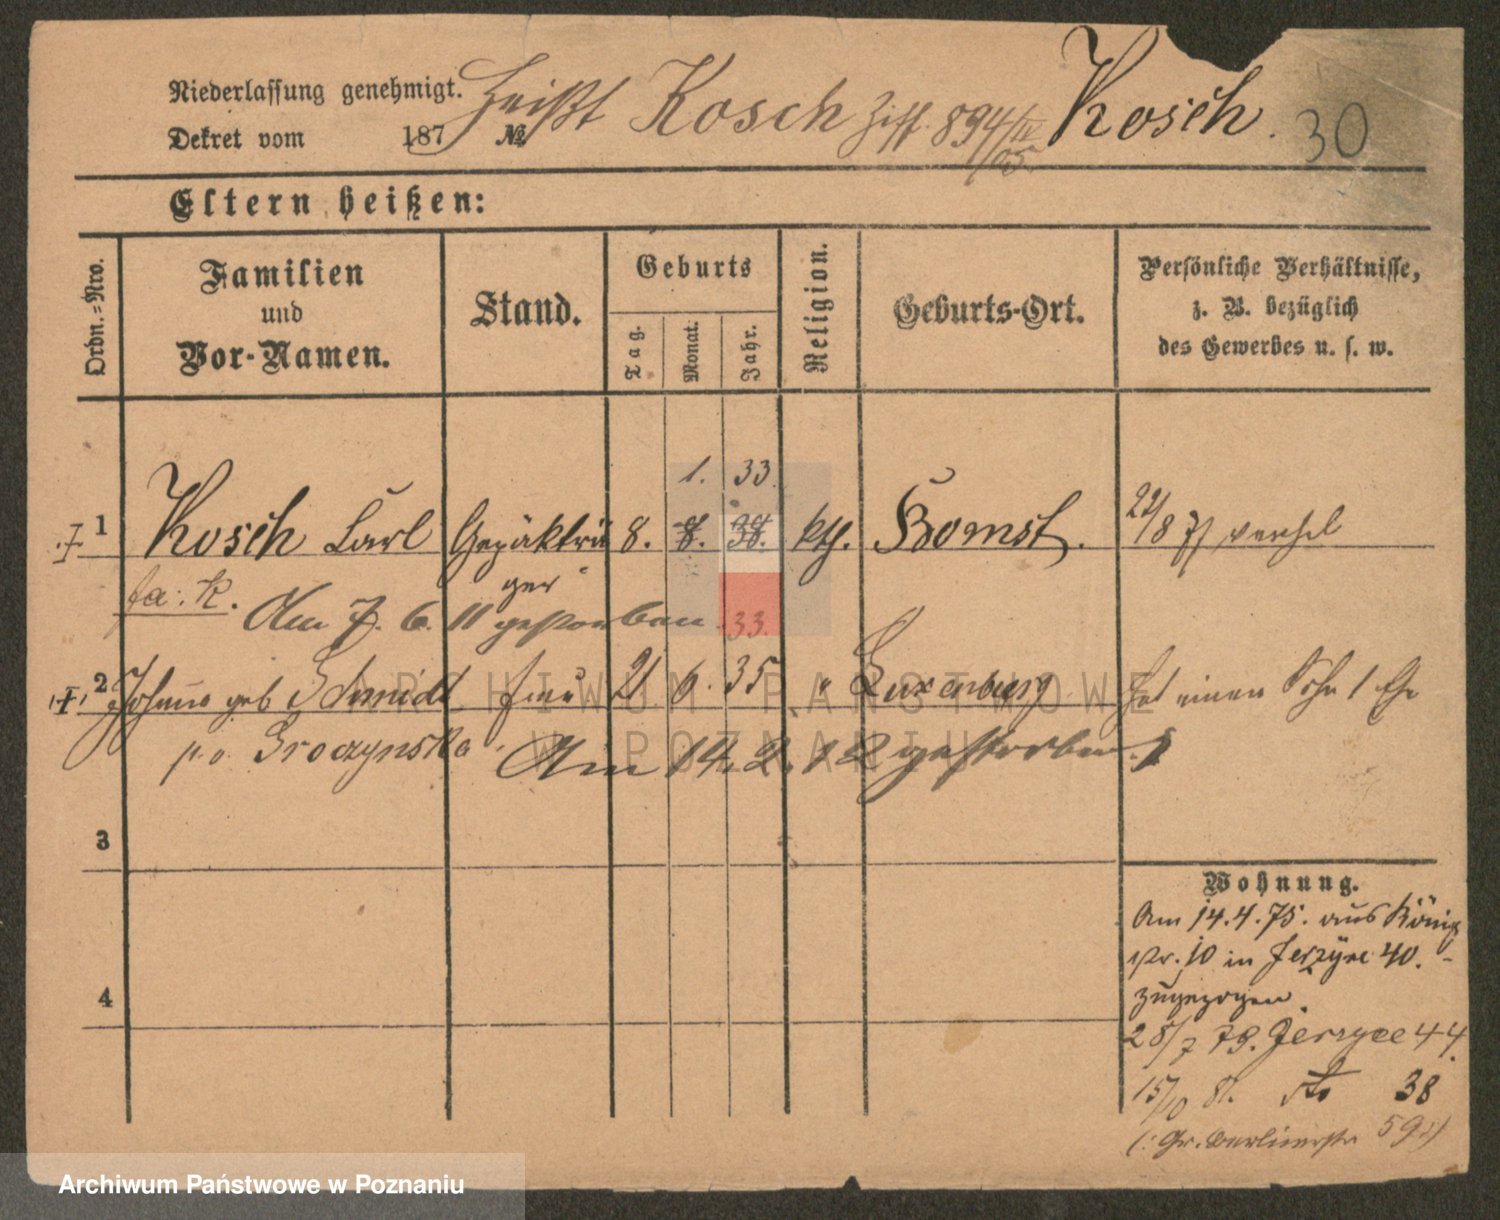 Niederlassung genehmigt. heißt Kosch Ziff. 894/IV 05 Kosch. 30
Dekret vom 187 №
Eltern heißen:
Ordn.-Nro.
Familien
und
Vor-Namen.
Stand.
Geburts
Tag.
Monat.
Jahr.
Religion.
Geburts-Ort.
Persönliche Verhältnisse,
z. B. bezüglich
des Gewerbes u. s. w.
1. 33
1 Kosch Carl Gepäkträ 8. 8. 38. kth. Bomst. 22/8 71
fa: k. ger
Am 7. 6. 11 gestorben. 33.
2 Johanna geb Schmidt frau 21 6. 35 " Luxenburg hat einen Sohn 1 Ehe
p. o. Groczynska Am 14. 2. 12 gestorben.
3
4
Wohnung.
Am 14.4.75. aus König
str. 10 in Jerzyce 40.
zugezogen.
28/7 79. Jerzyce 44.
15/10 81. dto 38
(: Gr. Berlinerstr 59 :)
ARCHIWUM PAŃSTWOWE
W POZNANIU
Archiwum Państwowe w Poznaniu